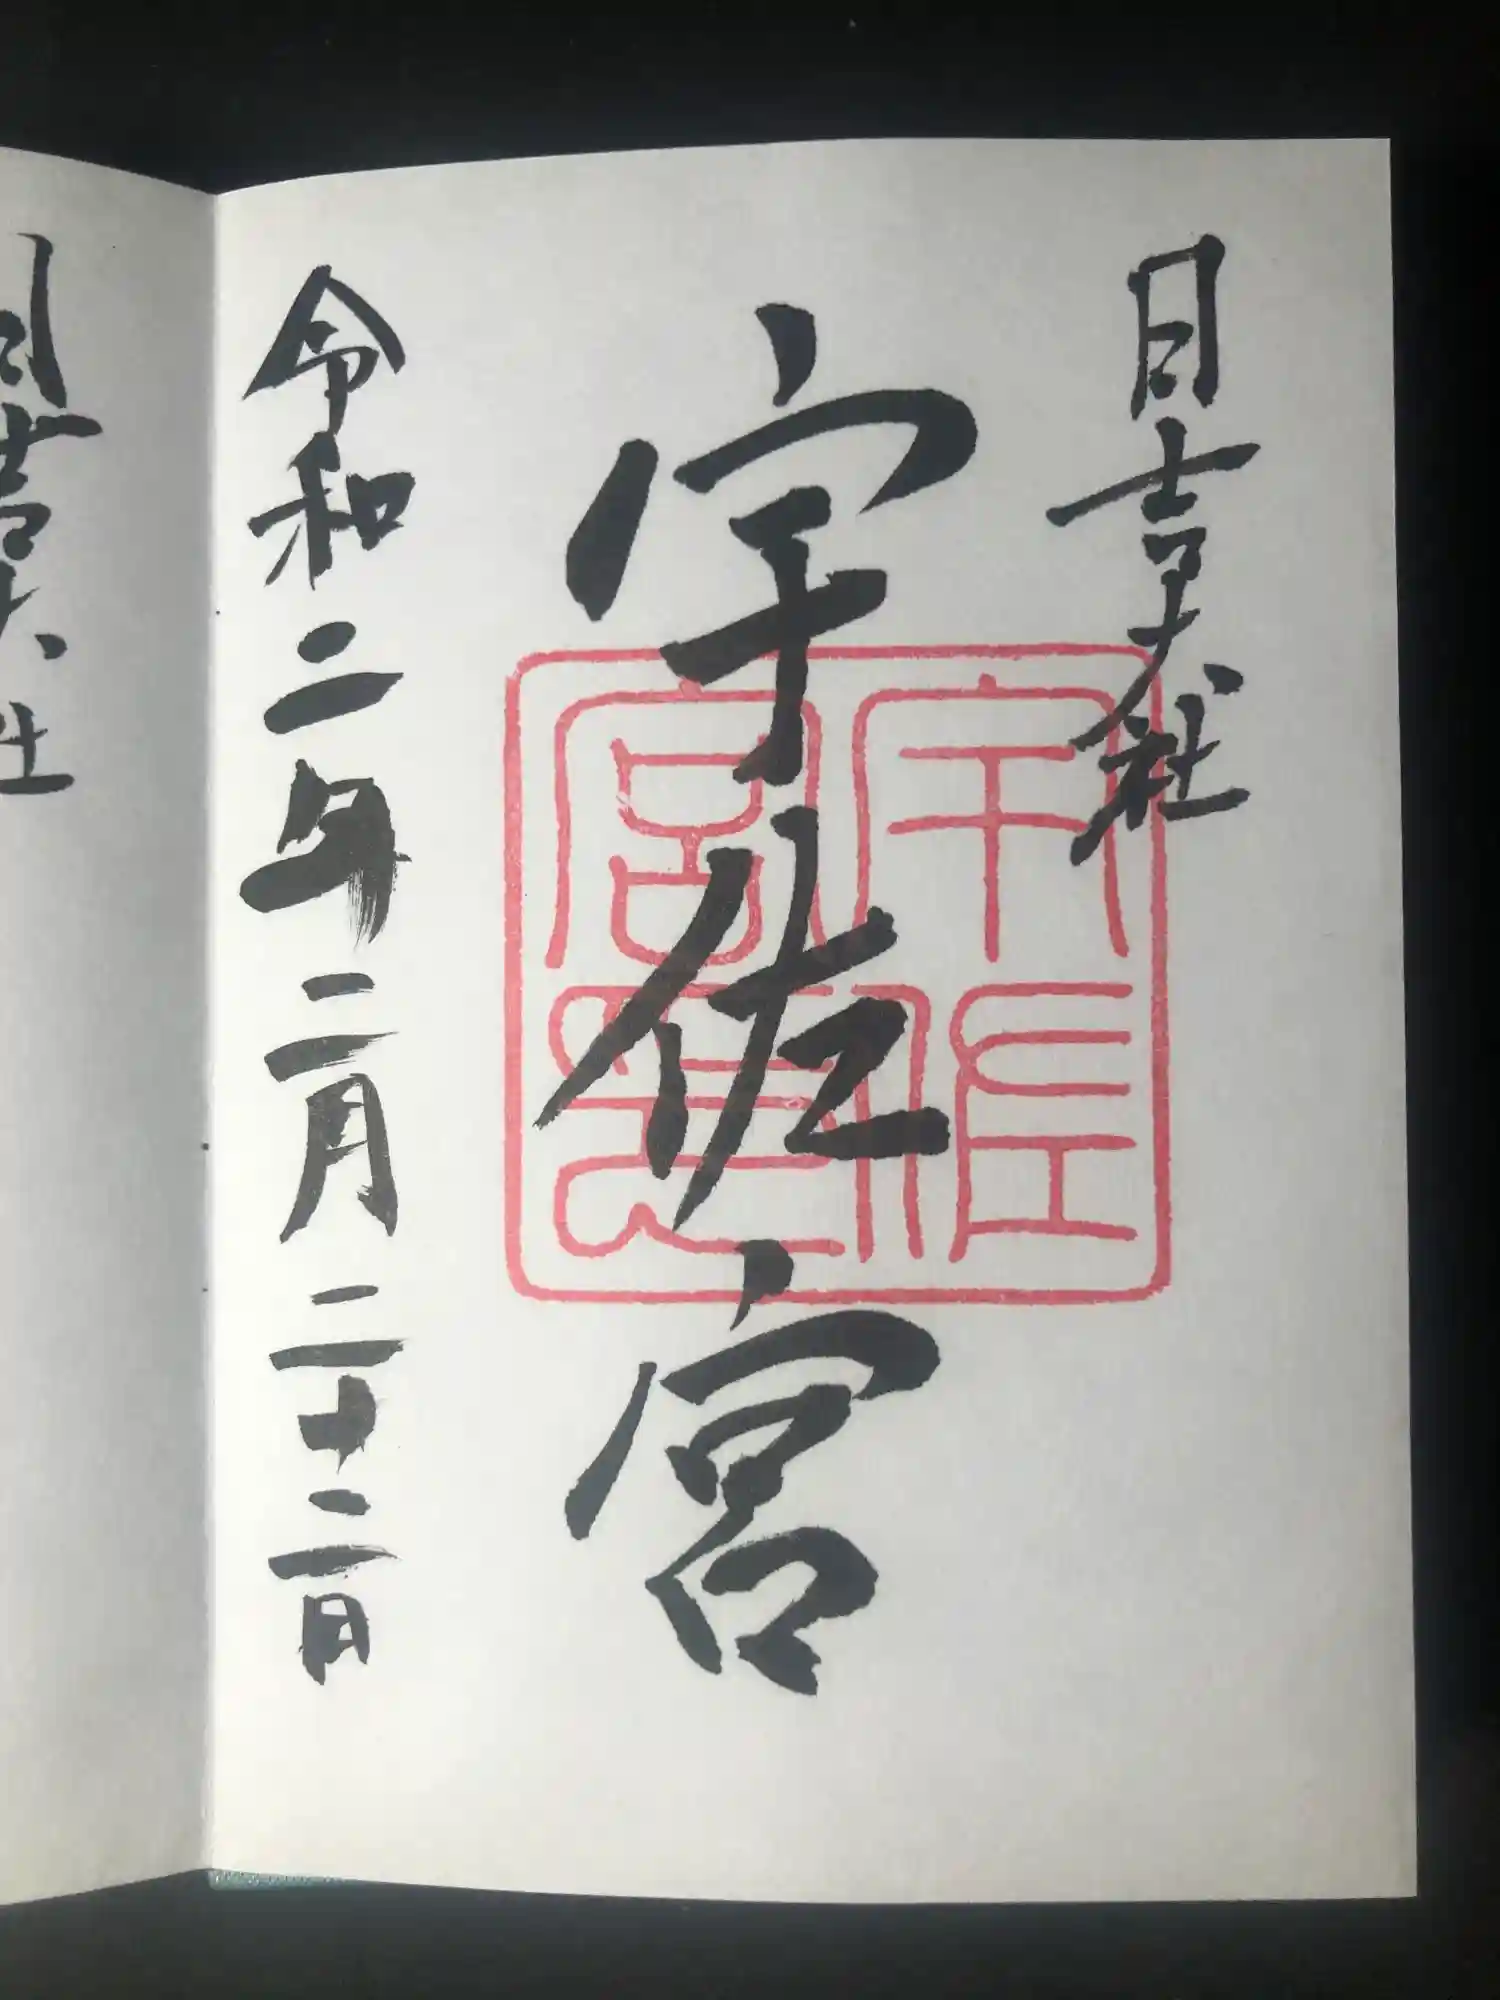 日吉大社
宇佐宮
宇佐宮印
令和二年二月二十二日
日吉大社